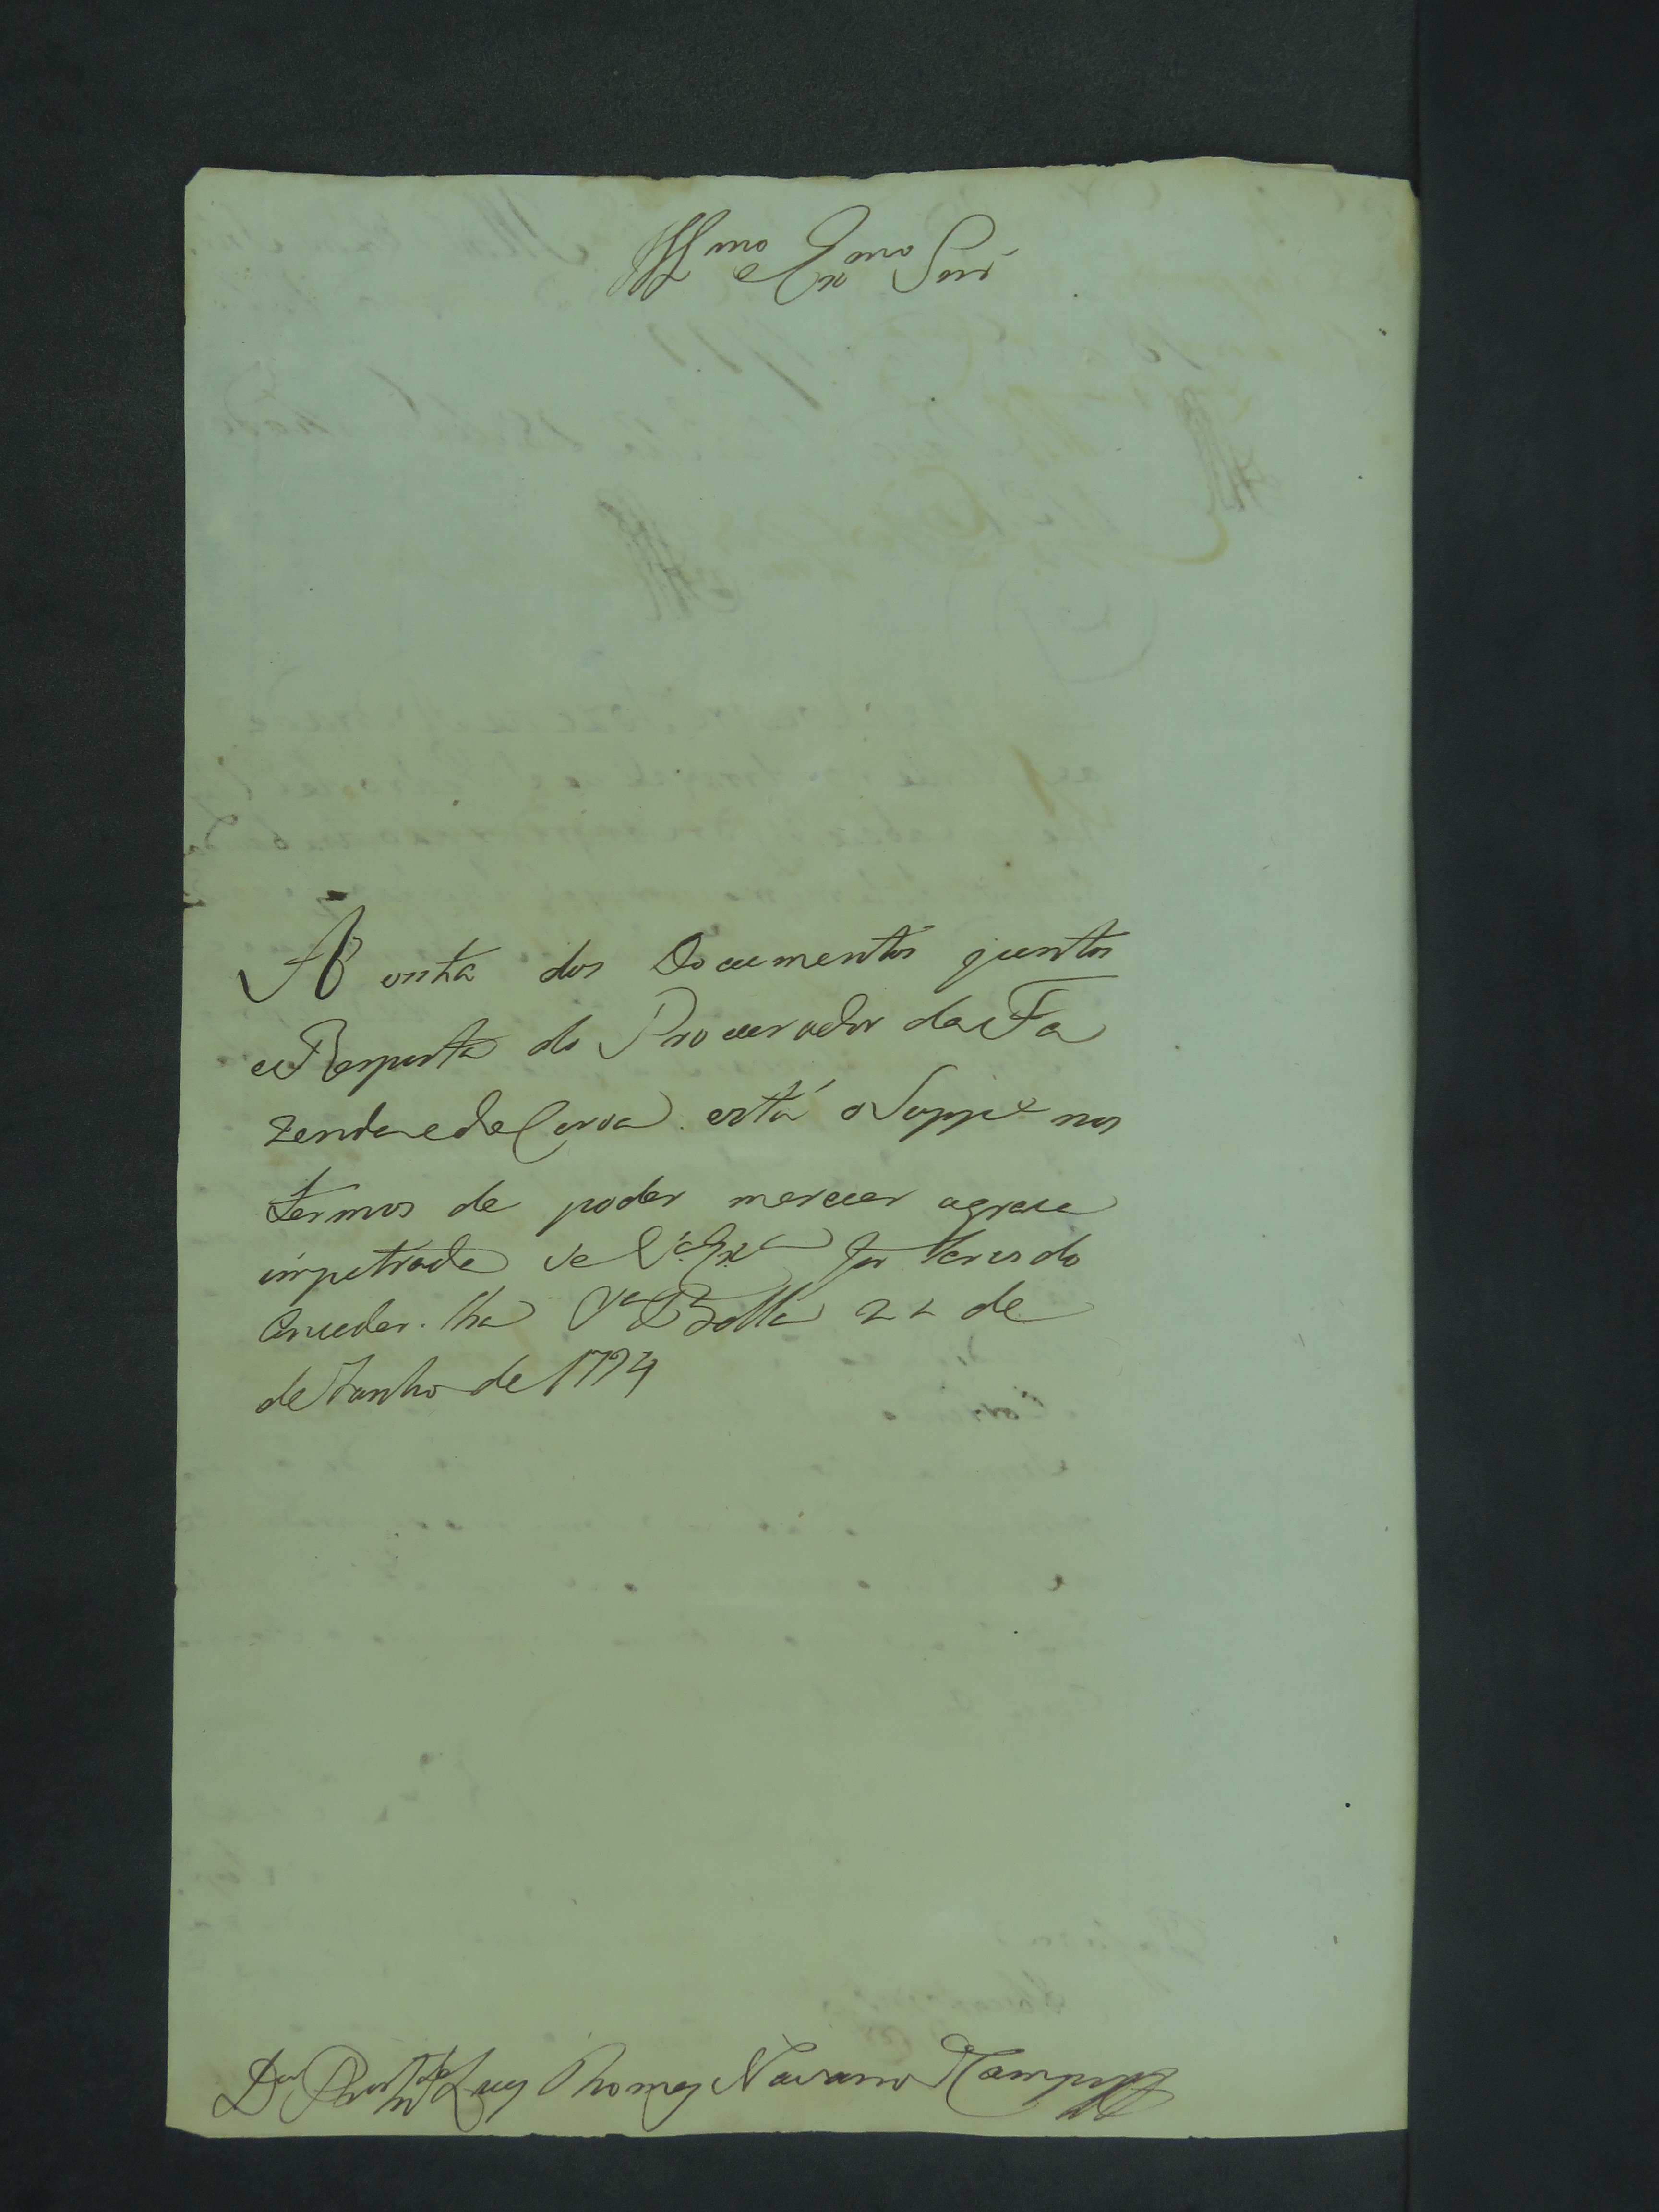 Illmo e Exmo Snr
A vista dos Documentos juntos
e Resposta do Procurador da Fa
zenda e da Coroa está o Suppe nos
termos de poder merecer agraca
impetrada se V.Exa for servido
Conceder-lha Va Bella 22 de
de Junho de 1794
Luiz Thomaz Navarro de Campos